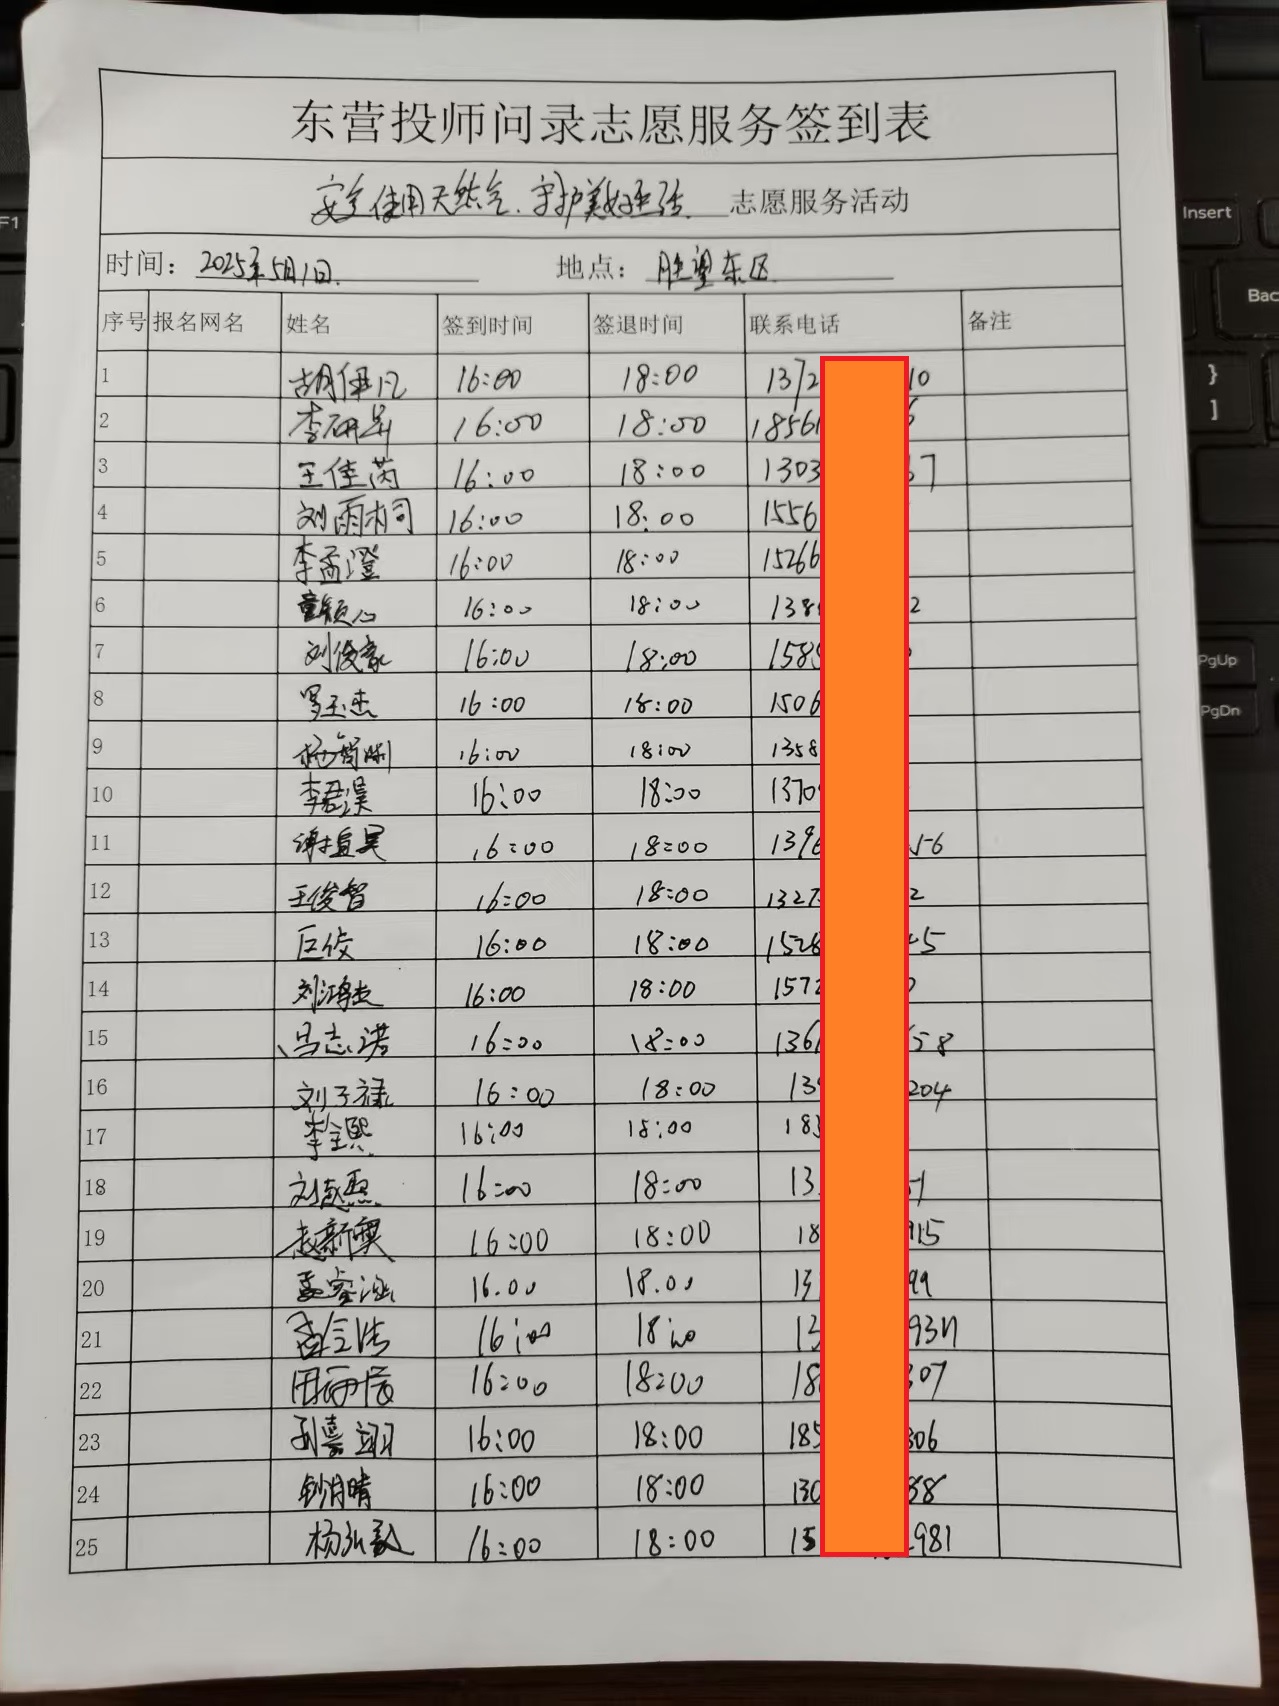 东营投师问录志愿服务签到表
安全使用天然气、守护美好生活 志愿服务活动
时间： 2025年5月1日 地点： 胜望东区
序号 报名网名 姓名 签到时间 签退时间 联系电话 备注
1 胡伊凡 16:00 18:00 1372 10
2 李研 16:00 18:00 18561
3 王佳芮 16:00 18:00 1303 7
4 刘雨桐 16:00 18:00 1556
5 李孟澄 16:00 18:00 15266
6 童颖心 16:00 18:00 138 2
7 刘俊豪 16:00 18:00 158
8 罗玉杰 16:00 18:00 1506
9 杨智渊 16:00 18:00 1358
10 李君淏 16:00 18:00 1370
11 16:00 18:00 139 56
12 王俊智 16:00 18:00 1327 2
13 巨俊 16:00 18:00 1528 5
14 刘鸿杰 16:00 18:00 157
15 吕志诺 16:00 18:00 136 58
16 刘子禄 16:00 18:00 13 204
17 李全熙 16:00 18:00 183
18 刘 16:00 18:00 13 1
19 赵新奥 16:00 18:00 18 915
20 孟睿涵 16.00 18.00 13 99
21 16:00 18:00 13 937
22 田雨辰 16:00 18:00 18 07
23 孙嘉翊 16:00 18:00 185 306
24 16:00 18:00 130 58
25 杨弘毅 16:00 18:00 15 981